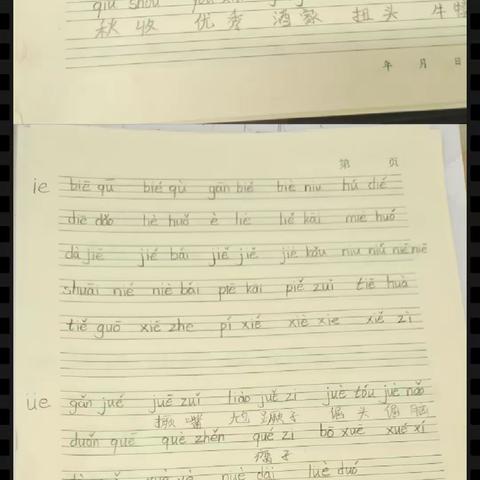 qiū shōu
秋 收 优 秀 酒 家 扭 头 牛
年 月 日
第 页
ie biē qū bié qù gān bié biè niu hú dié
diē dǎo liè huǒ è liè liě kāi miè huǒ
dà jiē jié bái jiě jiě jiè kǒu niu niǔ niē niē
shuāi nié niè bái piē kāi piě zuǐ tiē huà
tiě guō xiē zhe pí xié xiè xie xiě zì
üe gǎn jué juē zuǐ liào juě zi juè tóu juè nǎo
撅 嘴 尥 蹶 子 倔 头 倔 脑
duǎn quē què zhěn qué zi bō xuē xué xí
瘸 子
nuè dài luè duó